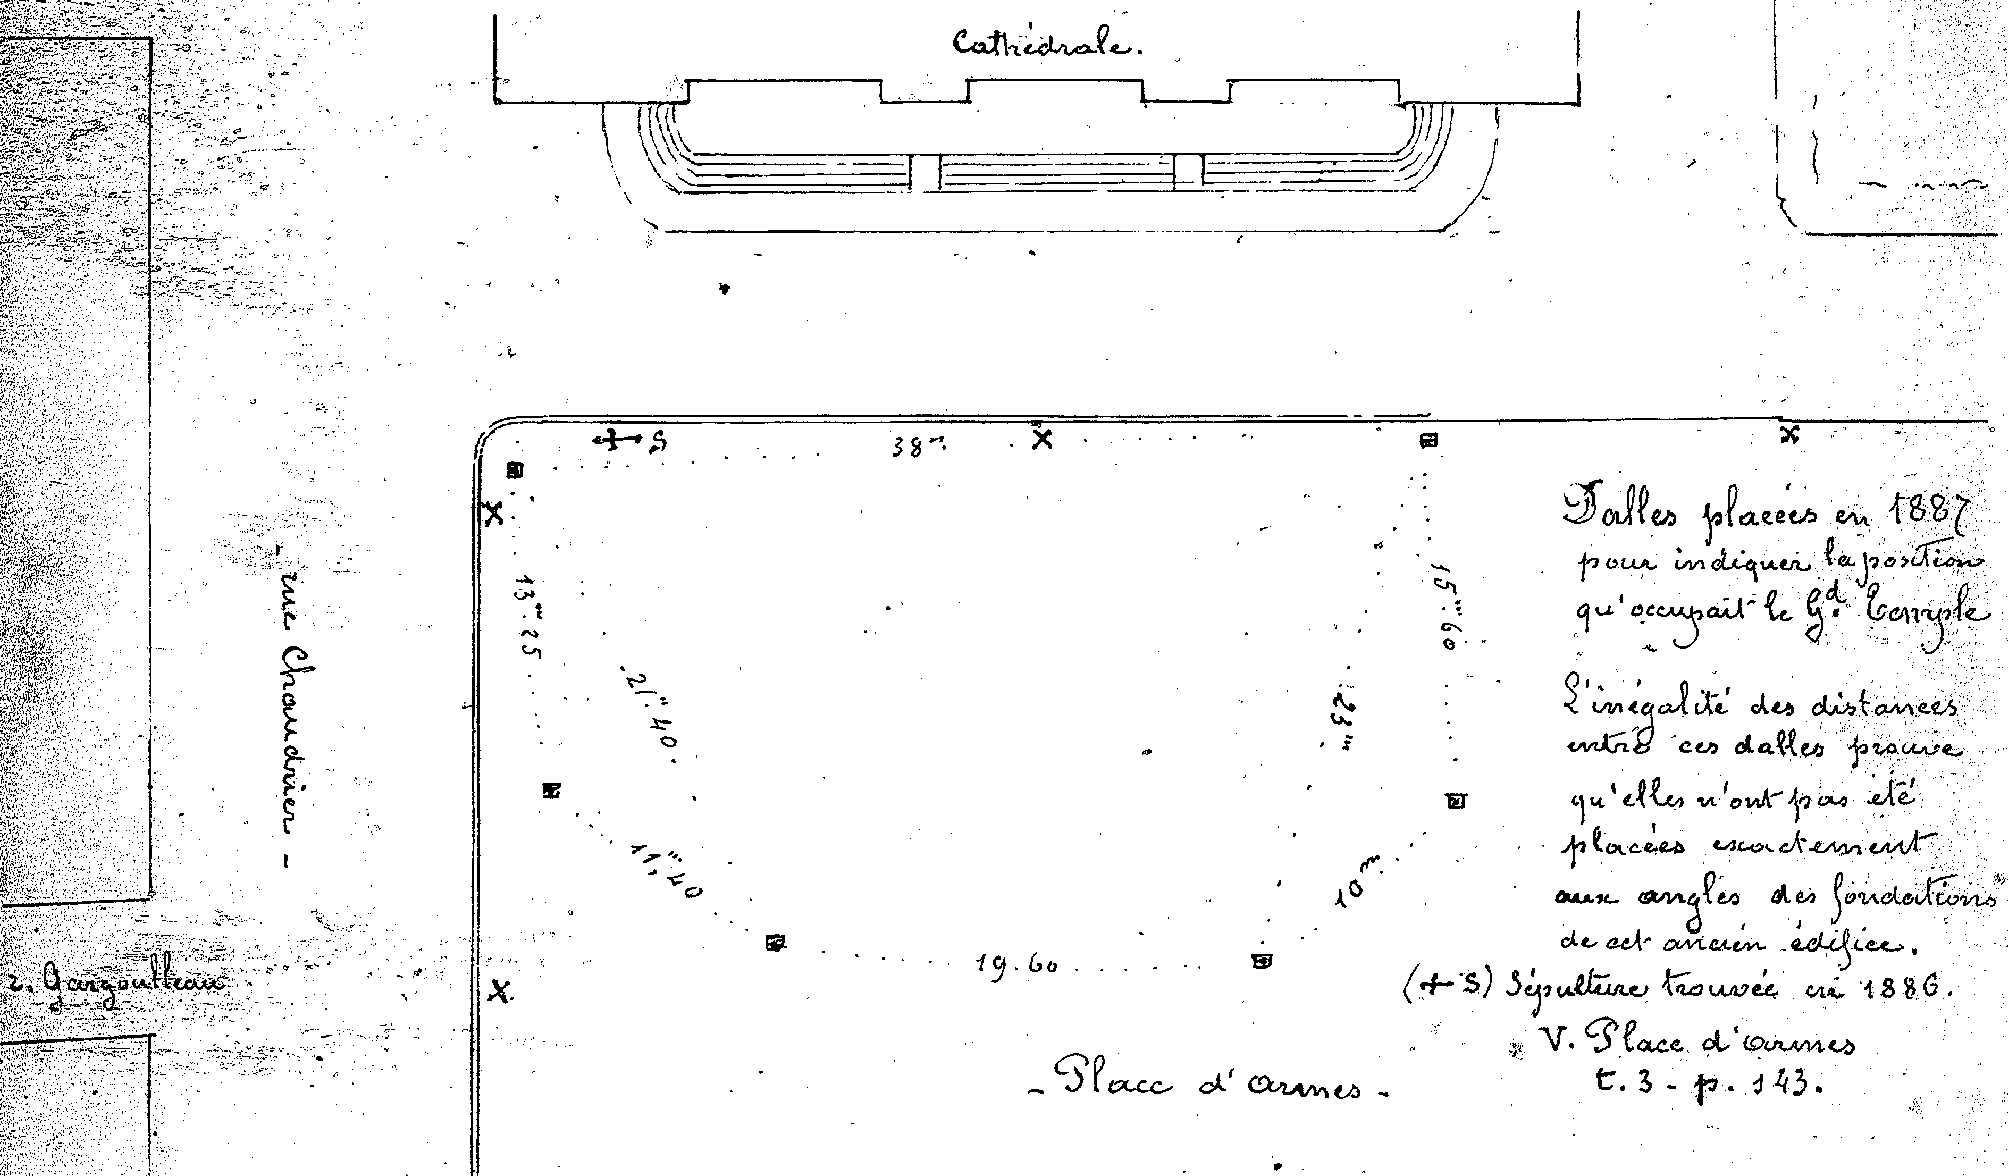 Cathédrale.
+ S
38m
X
X
X
13m.25
15m.60
- rue Chaudrier -
21m.40
23m
11m.40
10m
19.60
r. Gargoulleau
X
- Place d'armes -
Dalles placées en 1887
pour indiquer la position
qu'occupait le Gd. Temple
L'inégalité des distances
entre ces dalles prouve
qu'elles n'ont pas été
placées exactement
aux angles des fondations
de cet ancien édifice.
(+ S) Sépulture trouvée en 1886.
V. Place d'armes
t. 3 - p. 143.